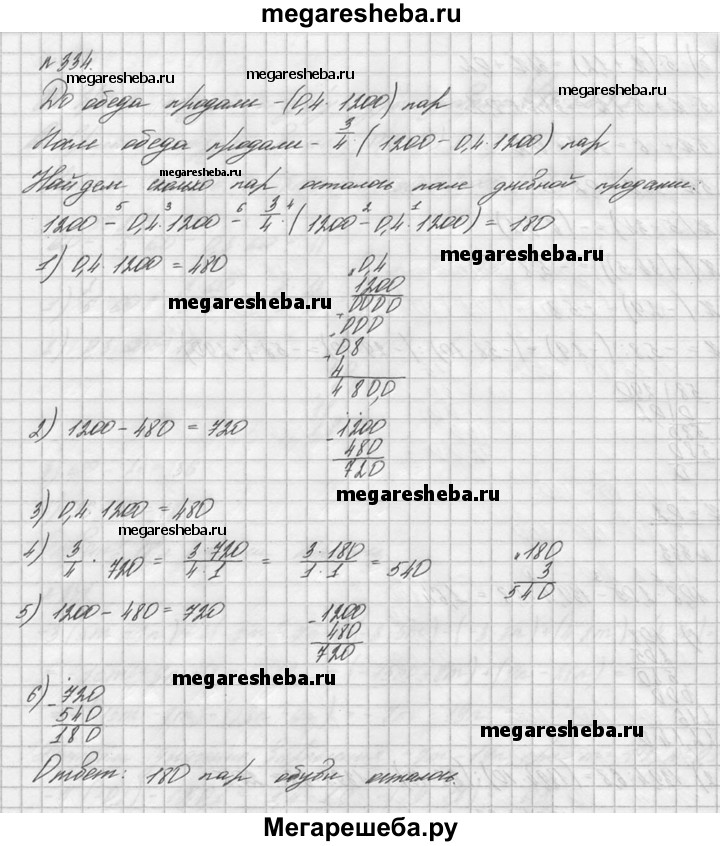 megaresheba.ru
№ 334.
megaresheba.ru megaresheba.ru
До обеда продали - (0,4 · 1200) пар
После обеда продали - 3/4 (1200 - 0,4 · 1200) пар
megaresheba.ru
Найдем сколько пар осталось после дневной продажи:
1200 -⁵ 0,4 ·³ 1200 -⁶ 3/4 ·⁴ (1200 -² 0,4 ·¹ 1200) = 180
megaresheba.ru
1) 0,4 · 1200 = 480
0,4
1200
0000
000
08
4
480,0
megaresheba.ru
2) 1200 - 480 = 720
- 1200
480
720
megaresheba.ru
3) 0,4 · 1200 = 480
megaresheba.ru
4) 3/4 · 720 = 3·720/4·1 = 3·180/1·1 = 540
180
3
540
5) 1200 - 480 = 720
- 1200
480
720
megaresheba.ru
6) - 720
540
180
megaresheba.ru
Ответ: 180 пар обуви осталось.
Мегарешеба.ру